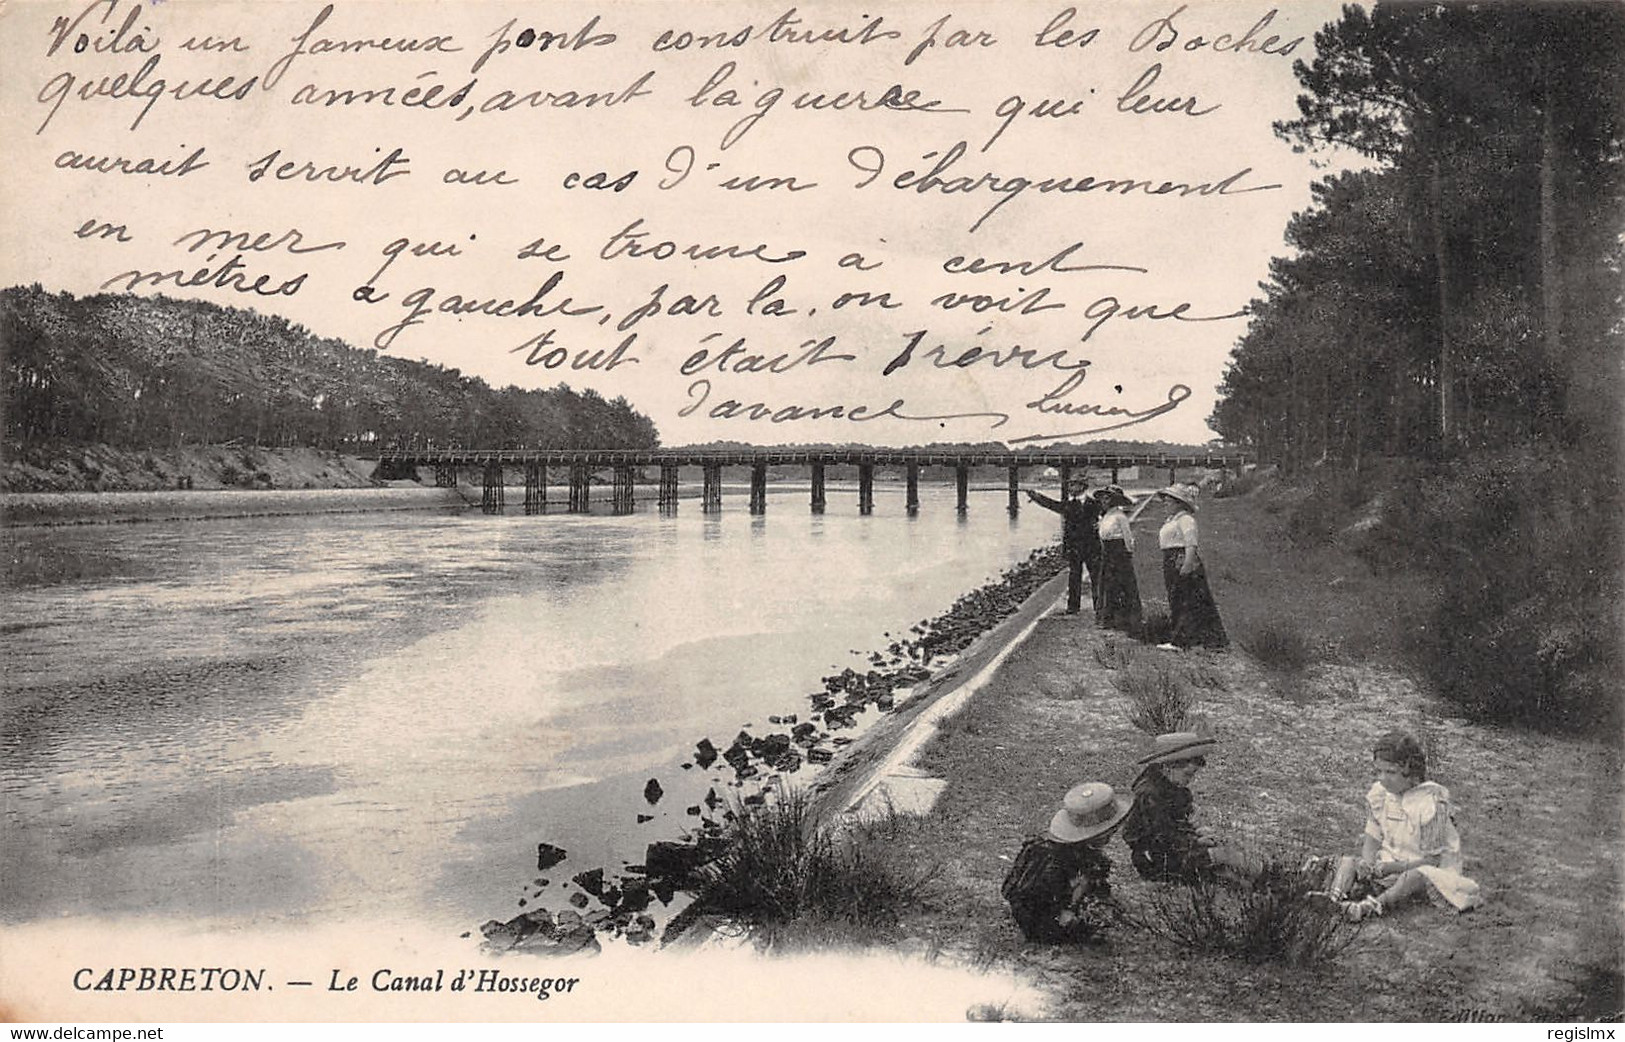 Voilà un fameux pont construit par les Boches
quelques années, avant la guerre qui leur
aurait servit au cas d'un débarquement
en mer qui se trouve à cent
mètres a gauche, par la, on voit que
tout était prévu
d'avance Lucien
CAPBRETON. — Le Canal d'Hossegor
Edition
regislmx